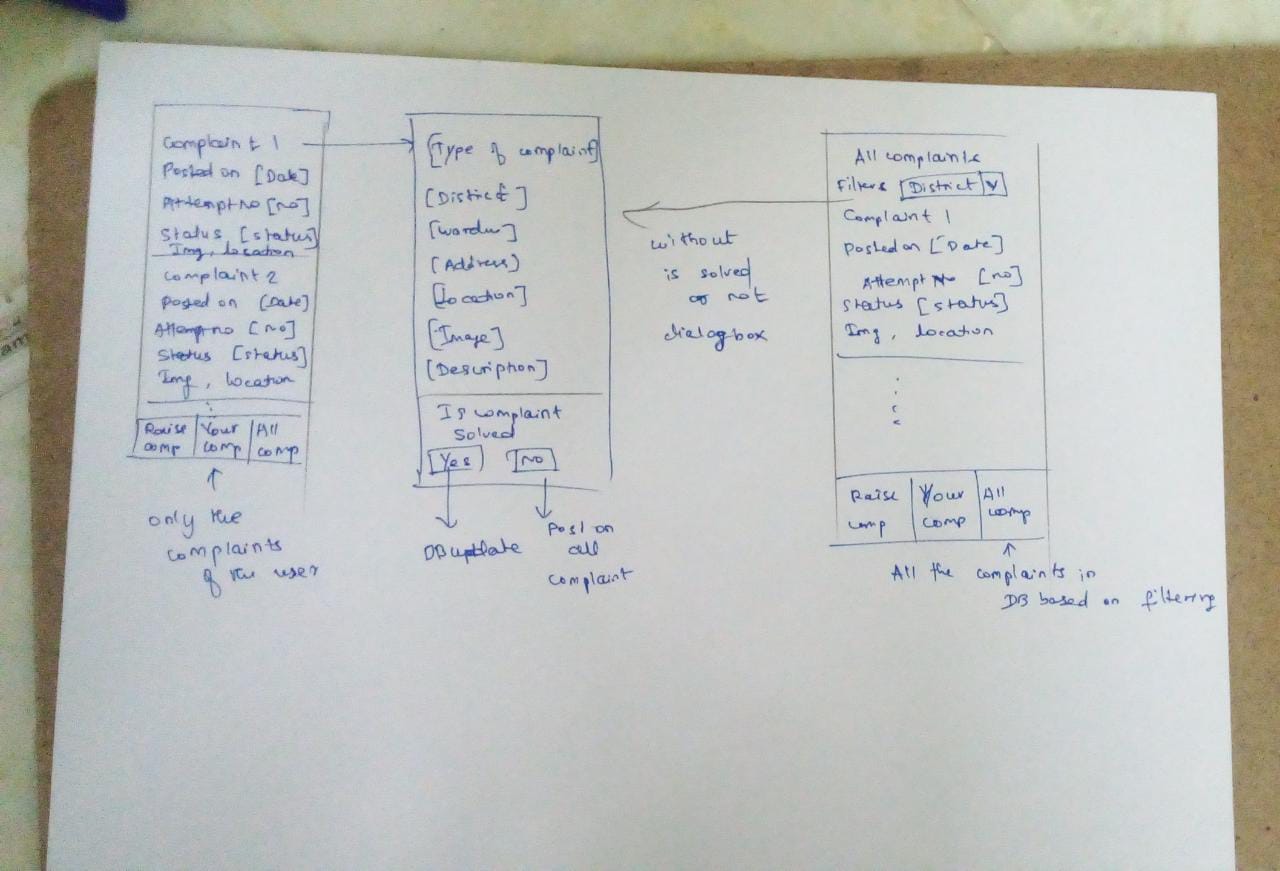 Complaint 1
Posted on [Date]
Attempt no [no]
Status [status]
Img, location
Complaint 2
Posted on [Date]
Attempt no [no]
Status [status]
Img, location
Raise comp
Your comp
All comp
only the
complaints
of the user
[Type of complaint]
[District]
[Address]
[Location]
[Image]
[Description]
Is complaint
solved
[Yes] [No]
DB update
Post on
all
complaint
without
is solved
or not
dialog box
All complaints
Filters [District v]
Complaint 1
Posted on [Date]
Attempt No [no]
Status [status]
Img, location
Raise comp
Your comp
All comp
All the complaints in
DB based on filtering